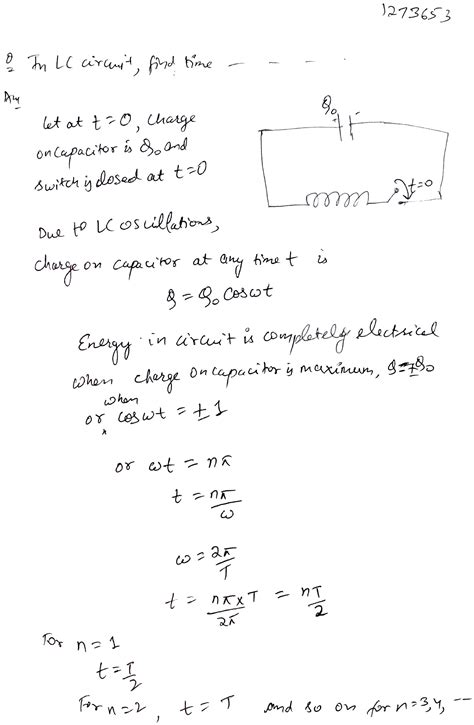 1273653
Q In LC circuit, find time - - - -
Ans
let at t=0, charge
on capacitor is Q₀ and
switch is closed at t=0
Q₀
t=0
Due to LC oscillations,
charge on capacitor at any time t is
Q = Q₀ cosωt
Energy in circuit is completely electrical
when charge on capacitor is maximum, Q=±Q₀
or when cosωt = ±1
or ωt = nπ
t = nπ/ω
ω = 2π/T
t = nπ×T/2π = nT/2
For n=1
t=T/2
For n=2, t = T and so on for n=3,4, --